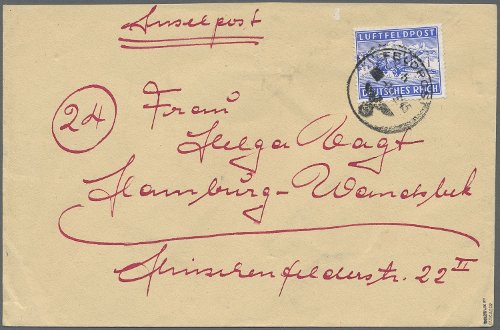 Inselpost
LUFTFELDPOST
FELDPOST
DEUTSCHES REICH
24 Frau
Helga Vagt
Hamburg-Wandsbek
22 II